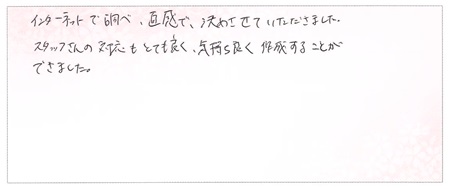 インターネットで調べ、直感で、決めさせていただきました。
スタッフさんの対応もとても良く、気持ち良く作成することが
できました。